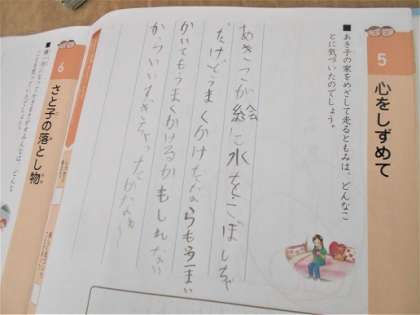 5
心をしずめて
■あき子の家をめざして走るともみは、どんなこ
とに気づいたのでしょう。
あきこが絵に水をこぼしちゃ
ったけどうまくかけてたならもう一まい
かいてもうまくかけるかもしれない
からいいすぎちゃったかなぁ〜
6
さと子の落とし物